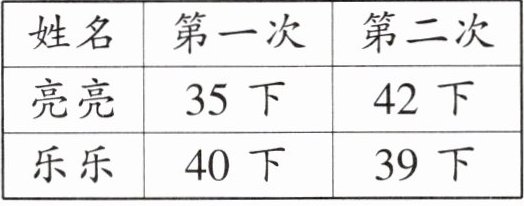 姓名 第一次 第二次
亮亮 35 下 42 下
乐乐 40 下 39 下